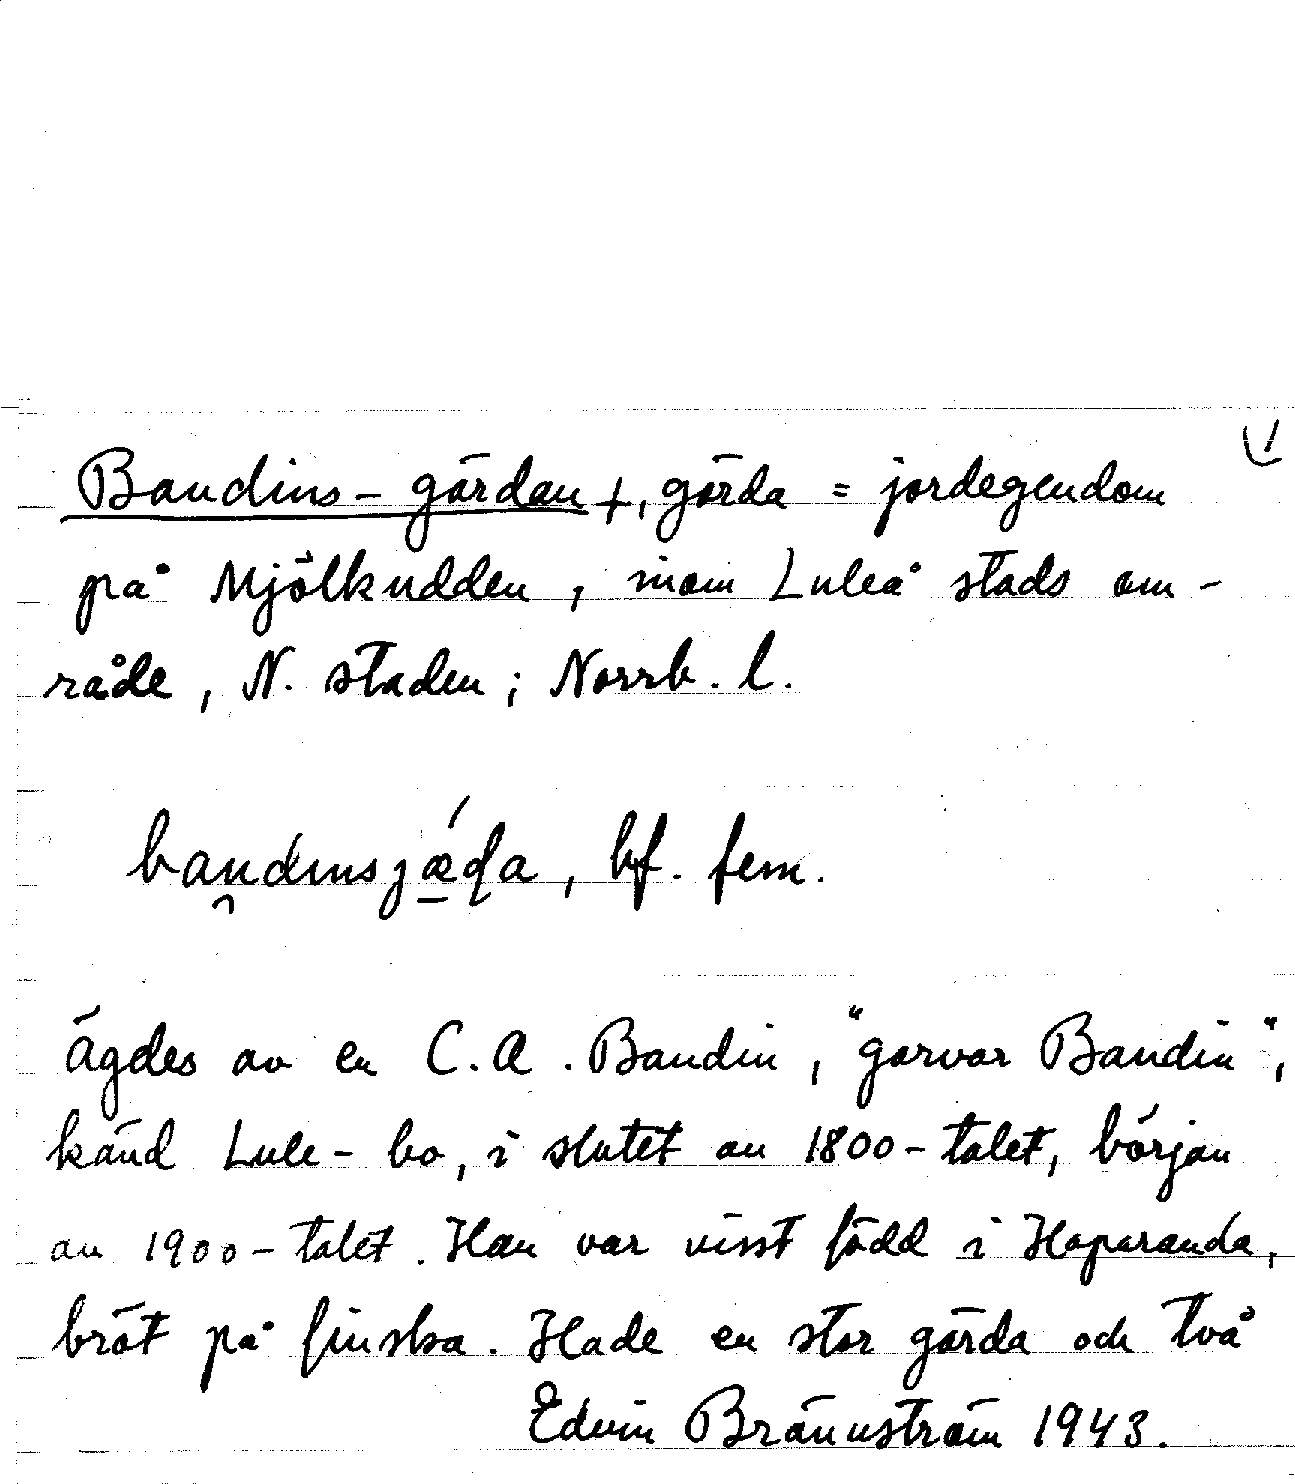 Baudins-gärdan +, gärda = jordegendom
på Mjölkudden, inom Luleå stads om-
råde, N. staden; Norrb. l.
baudinsjæḍa, bf. fem.
Ägdes av en C.A. Baudin, "garvar Baudin",
känd Lule-bo, i slutet av 1800-talet, början
av 1900-talet. Han var visst född i Haparanda,
bröt på finska. Hade en stor gärda och två
Edvin Brännström 1943.